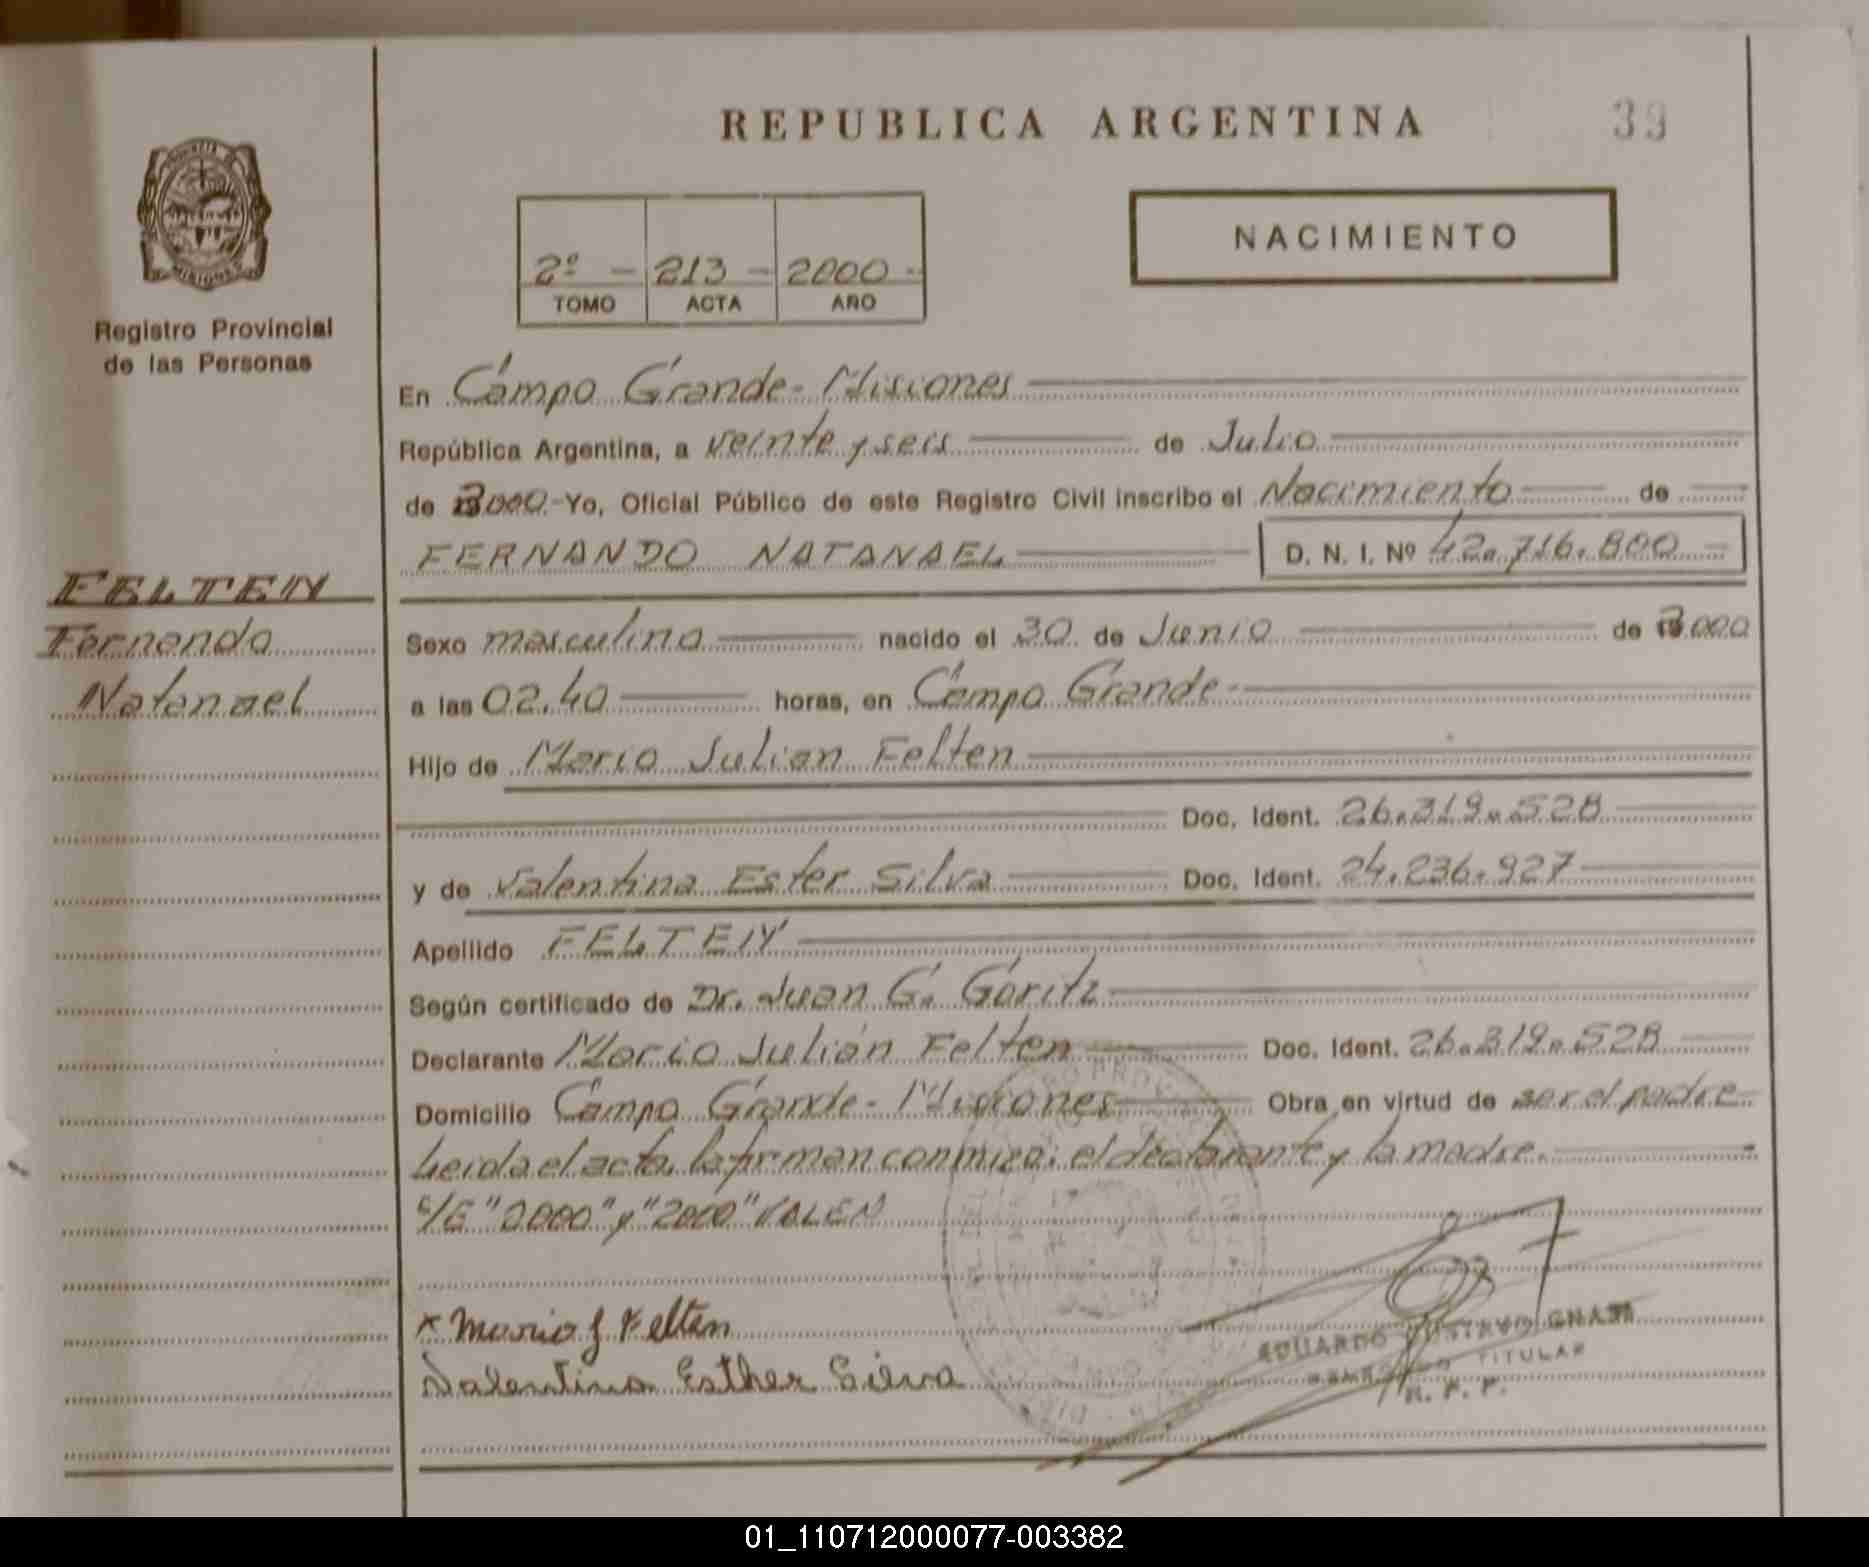 REPUBLICA ARGENTINA
39
PROVINCIA DE
MISIONES
Registro Provincial
de las Personas
NACIMIENTO
2º - 213 - 2000 -
TOMO ACTA AÑO
En Campo Grande - Misiones
República Argentina, a veinte y seis de Julio
de 2000 - Yo, Oficial Público de este Registro Civil inscribo el Nacimiento de
FERNANDO NATANAEL D. N. I. Nº 42.716.800 -
FELTEN
Fernando
Natanael
Sexo masculino nacido el 30 de Junio de 2000
a las 02.40 horas, en Campo Grande -
Hijo de Mario Julian Felten
Doc. Ident. 26.319.528
y de Valentina Ester Silva Doc. Ident. 24.236.927
Apellido FELTEN
Según certificado de Dr. Juan G. Goritz
Declarante Mario Julián Felten Doc. Ident. 26.319.528
Domicilio Campo Grande - Misiones Obra en virtud de ser el padre
Leida el acta, la firman conmigo; el declarante y la madre.
S/E "2000" y "2000" VALEN
x Mario J Felten
Valentina Esther Silva
EDUARDO GUSTAVO
TITULAR
R. P. P.
01_110712000077-003382